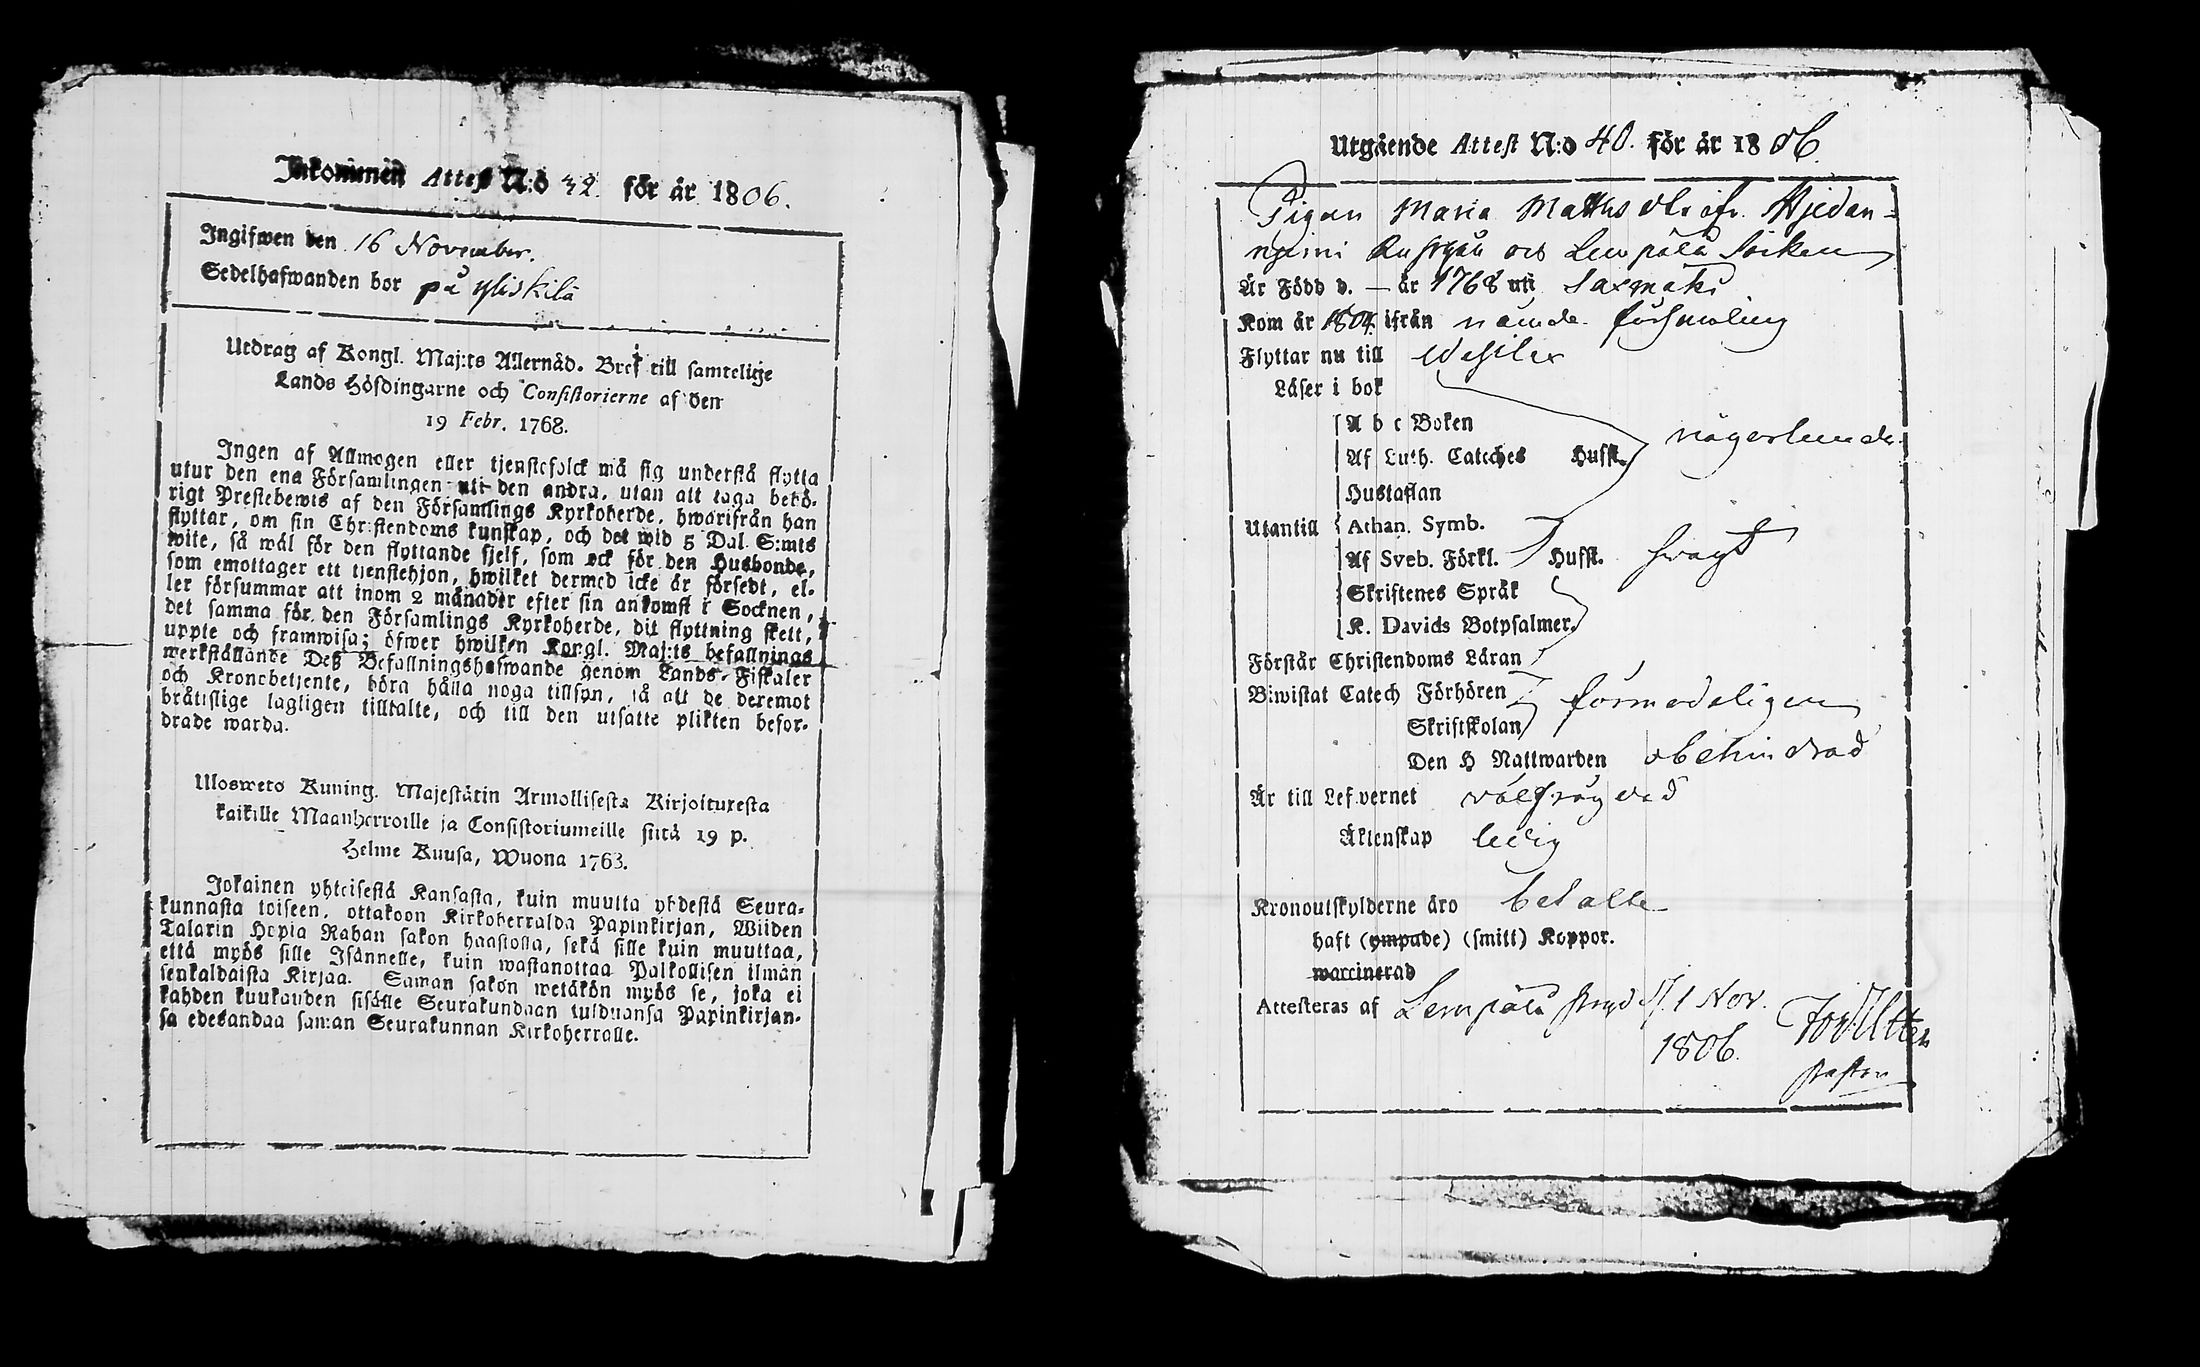 Inkommen Attest N:o 32. för år 1806.
Ingifwen den 16 November.
Sedelhafwanden bor på Yliskilä
Utdrag af Kongl. Maj:ts Allernåd. Bref till samtelige
Lands Höfdingarne och Consistorierne af den
19 Febr. 1768.
Ingen af Allmogen eller tjenstefolck må sig understå flytta
utur den ena Församlingen uti den andra, utan att taga behö-
rigt Prestebewis af den Församlings Kyrkoherde, hwarifrån han
flyttar, om sin Christendoms kunskap, och det wid 5 Dal. S:mts
wite, så wäl för den flyttande sjelf, som ock för den Husbonde,
som emottager ett tjenstehjon, hwilket dermed icke är försedt, el-
ler försummar att inom 2 månader efter sin ankomst i Socknen,
det samma för den Församlings Kyrkoherde, dit flyttning skett,
uppte och framwisa; öfwer hwilken Kongl. Maj:ts befallnings
werkställande Deß Befallningshafwande genom Lands-Fiskaler
och Kronobetjente, böra hålla noga tillsyn, så att de deremot
bråtislige lagligen tilltalte, och till den utsatte plikten befor-
drade warda.
Ulosweto Kuning. Majestätin Armollisesta Kirjoituxesta
kaikille Maanherroille ja Consistoriumeille siitä 19 p.
Helme Kuusa, Wuona 1763.
Jokainen yhteisestä Kansasta, kuin muutta yhdestä Seura-
kunnasta toiseen, ottakoon Kirkoherralda Papinkirjan, Wiiden
Talarin Hopia Rahan sakon haastolla, sekä sille kuin muuttaa,
että myös sille Isännelle, kuin wastanottaa Palkollisen ilman
senkaldaista Kirjaa. Saman sakon wetäkön myös se, joka ei
kahden kuukauden sisälle Seurakundaan tulduansa Papinkirjan-
sa edesandaa saman Seurakunnan Kirkoherralle.
Utgående Attest N:o 40. för år 1806.
Pigan Maria Matths dr ifr.
Lempälä Socken
Är Född d. — år 1768 uti Saxmäki
Kom år 1804 ifrån nämde församling
Flyttar nu till
Läser i bok
A b c Boken
Af Luth. Cateches Hufst. någorlunda
Hustaflan
Utantill Athan. Symb.
Af Sveb. Förkl. Hufst. swagt
Skriftenes Språk
K. Davids Botpsalmer.
Förstår Christendoms Läran
Biwistat Catech Förhören förmodeligen
Skriftskolan
Den H Nattwarden obehindrad
Är till Lefvernet välfrägdad
Äktenskap ledig
Kronoutskylderne äro betalte
haft (ympade) (smitt) Koppor.
waccinerad
Attesteras af Lempälä d. 1 Nov.
1806.
Pastor